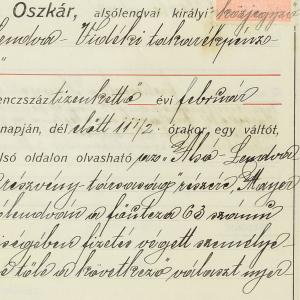 Oszkár, alsólendvai királyi közjegyző
Lendva-Vidéki takarékpénz
enczszáztizenkettő évi február
napján, dél előtt 11 1/2 órakor, egy váltót,
lső oldalon olvasható „Alsó-Lendva
részvény-társaság" részére, Mayer
lendván a főutcza 63 számú
iségében fizetés végett személye-
tőle a következő választ nyer